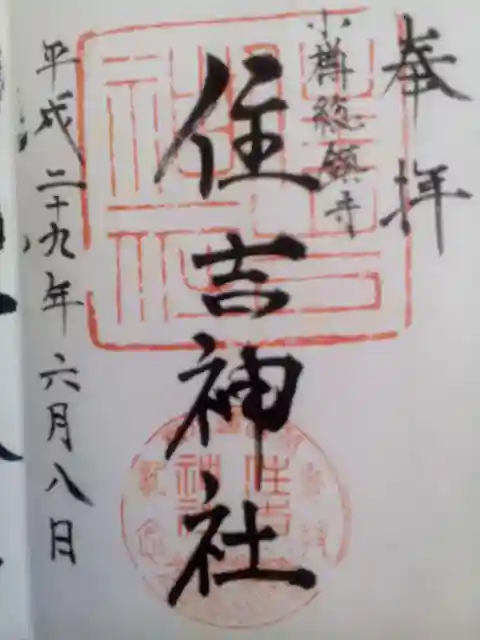 奉拝
小樽総鎮守
住吉神社
平成二十九年六月八日
住吉
神社